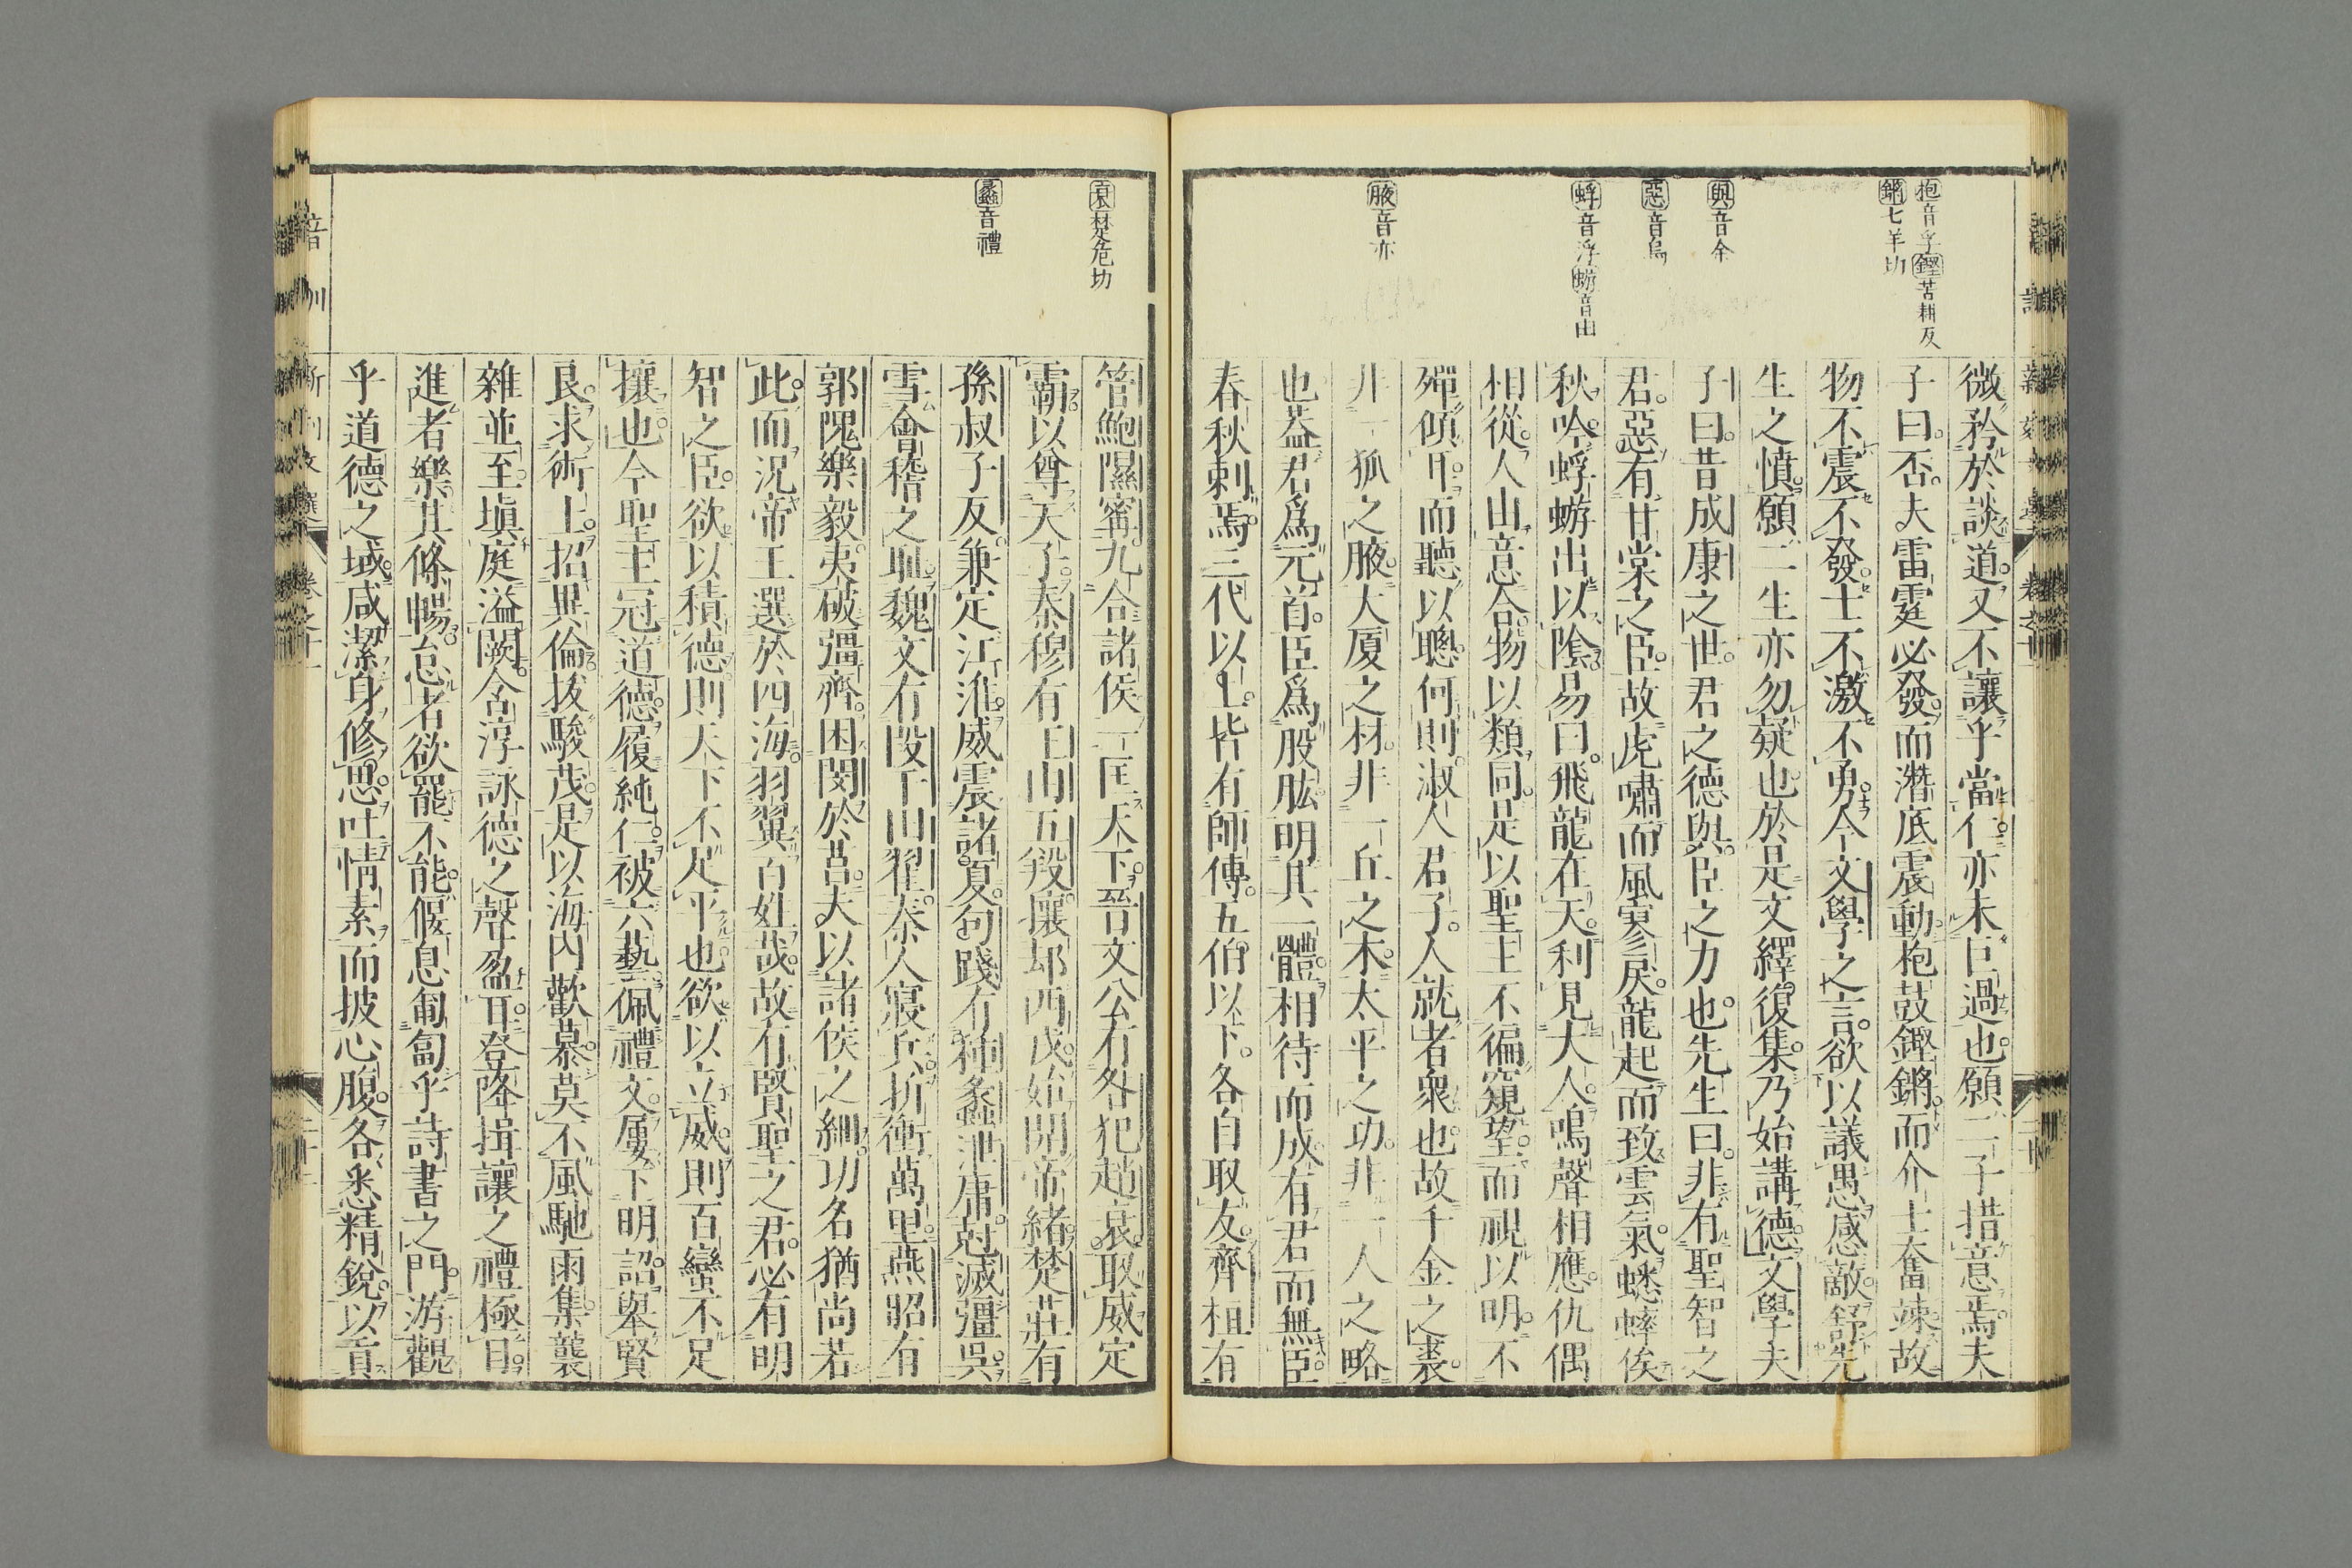 枹音孚鏗苦耕反
鏘七羊切
與音余
惡音烏
蜉音浮蝣音由
腋音亦
微矜於談道又不讓乎當仁亦未巨過也願二子措意焉夫
子曰否夫雷霆必發而潛底震動枹鼓鏗鏘而介士奮竦故
物不震不發士不激不勇今文學之言欲以議愚感敵舒先
生之憤願二生亦勿疑也於是文繹復集乃始講德文學夫
子曰昔成康之世君之德與臣之力也先生曰非有聖智之
君惡有甘棠之臣故虎嘯而風寥戾龍起而致雲氣蟋蟀俟
秋吟蜉蝣出以陰易曰飛龍在天利見大人鳴聲相應仇偶
相從人由意合物以類同是以聖主不徧窺望而視以明不
殫傾耳而聽以聰何則淑人君子人就者衆也故千金之裘
非一狐之腋大厦之材非一丘之木太平之功非一人之略
也蓋君爲元首臣爲股肱明其一體相待而成有君而無臣
春秋刺焉三代以上皆有師傅五伯以下各自取友齊桓有
裒楚危切
蠡音禮
管鮑隰甯九合諸侯一匡天下晉文公有咎犯趙衰取威定
霸以尊天子秦穆有王由五羖攘却西戎始開帝緒楚莊有
孫叔子反兼定江淮威震諸夏句踐有種蠡渫庸尅滅彊吳
雪會稽之耻魏文有段干田翟秦人寢兵折衝萬里燕昭有
郭隗樂毅夷破彊齊困閔於莒夫以諸侯之細功名猶尚若
此而况帝王選於四海羽翼百姓哉故有賢聖之君必有明
智之臣欲以積德則天下不足平也欲以立威則百蠻不足
攘也今聖主冠道德履純仁被六藝佩禮文屢下明詔舉賢
良求術士招異倫拔駿茂是以海内歡慕莫不風馳雨集襲
雜並至塡庭溢闕含淳詠德之聲盈耳登降揖讓之禮極目
進者樂其條暢怠者欲罷不能偃息匍匐乎詩書之門游觀
乎道德之域咸潔身修思吐情素而披心腹各悉精銳以貢